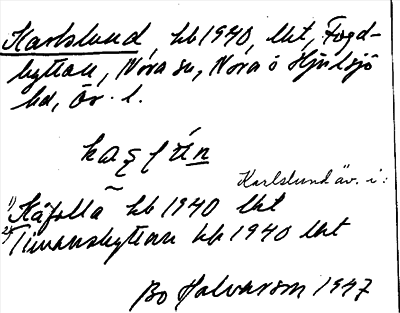 Karlslund, kb 1940, lht, Fogd-
hyttan, Nora sn, Nora o Hjulsjö
bd, Ör. l.
Karlslund äv. i:
1) Kåfalla kb 1940 lht
2) Timanshyttan kb 1940 lht
Bo Halvarson 1947